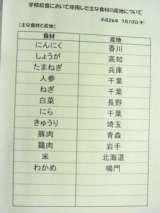 学校給食において使用した主な食材の産地について
平成26年 7月10日(木)
(主な食材の産地)
食材 産地
にんにく 香川
しょうが 高知
たまねぎ 兵庫
人参 千葉
ねぎ 千葉
白菜 長野
にら 千葉
きゅうり 埼玉
豚肉 青森
鶏肉 岩手
米 北海道
わかめ 鳴門